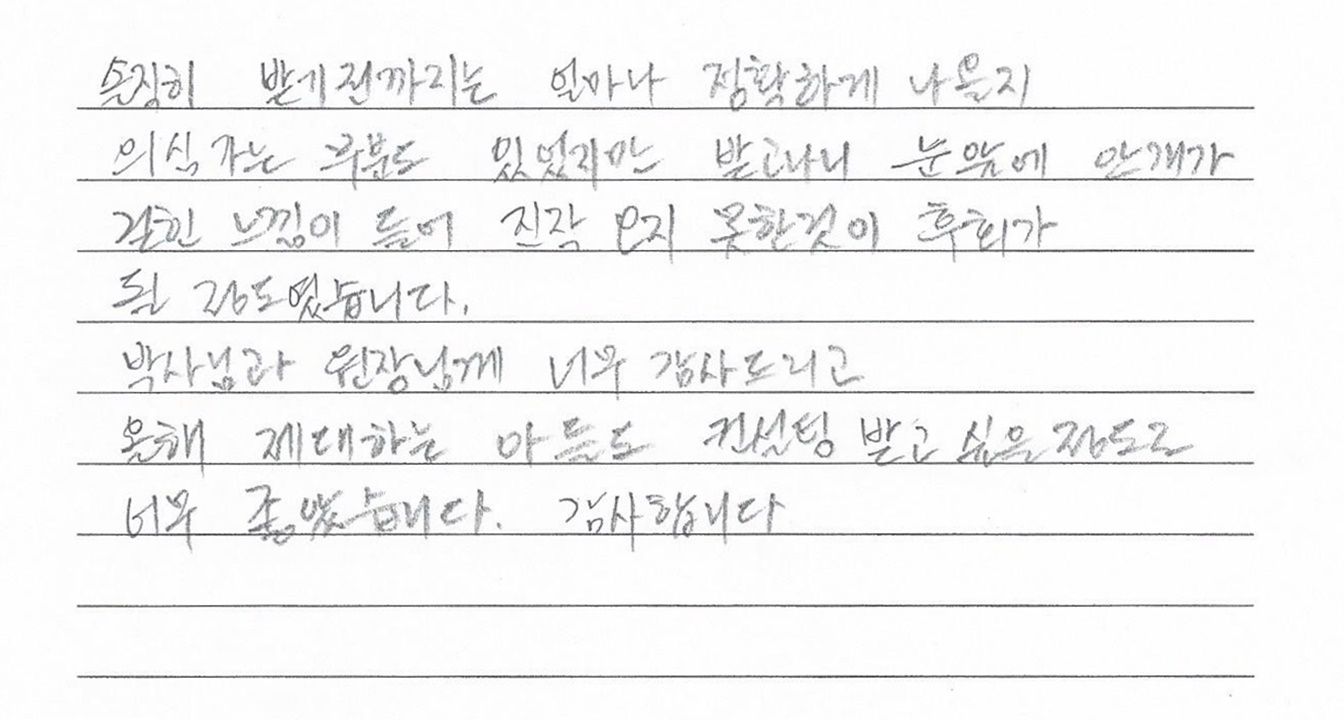 솔직히 받기전까지는 얼마나 정확하게 나올지
의심 가는 부분도 있었지만 받고나니 눈앞에 안개가
걷힌 느낌이 들어 진작 오지 못한것이 후회가
될 정도였습니다.
박사님과 원장님께 너무 감사드리고
올해 제대하는 아들도 컨설팅 받고 싶은 정도로
너무 좋았습니다. 감사합니다